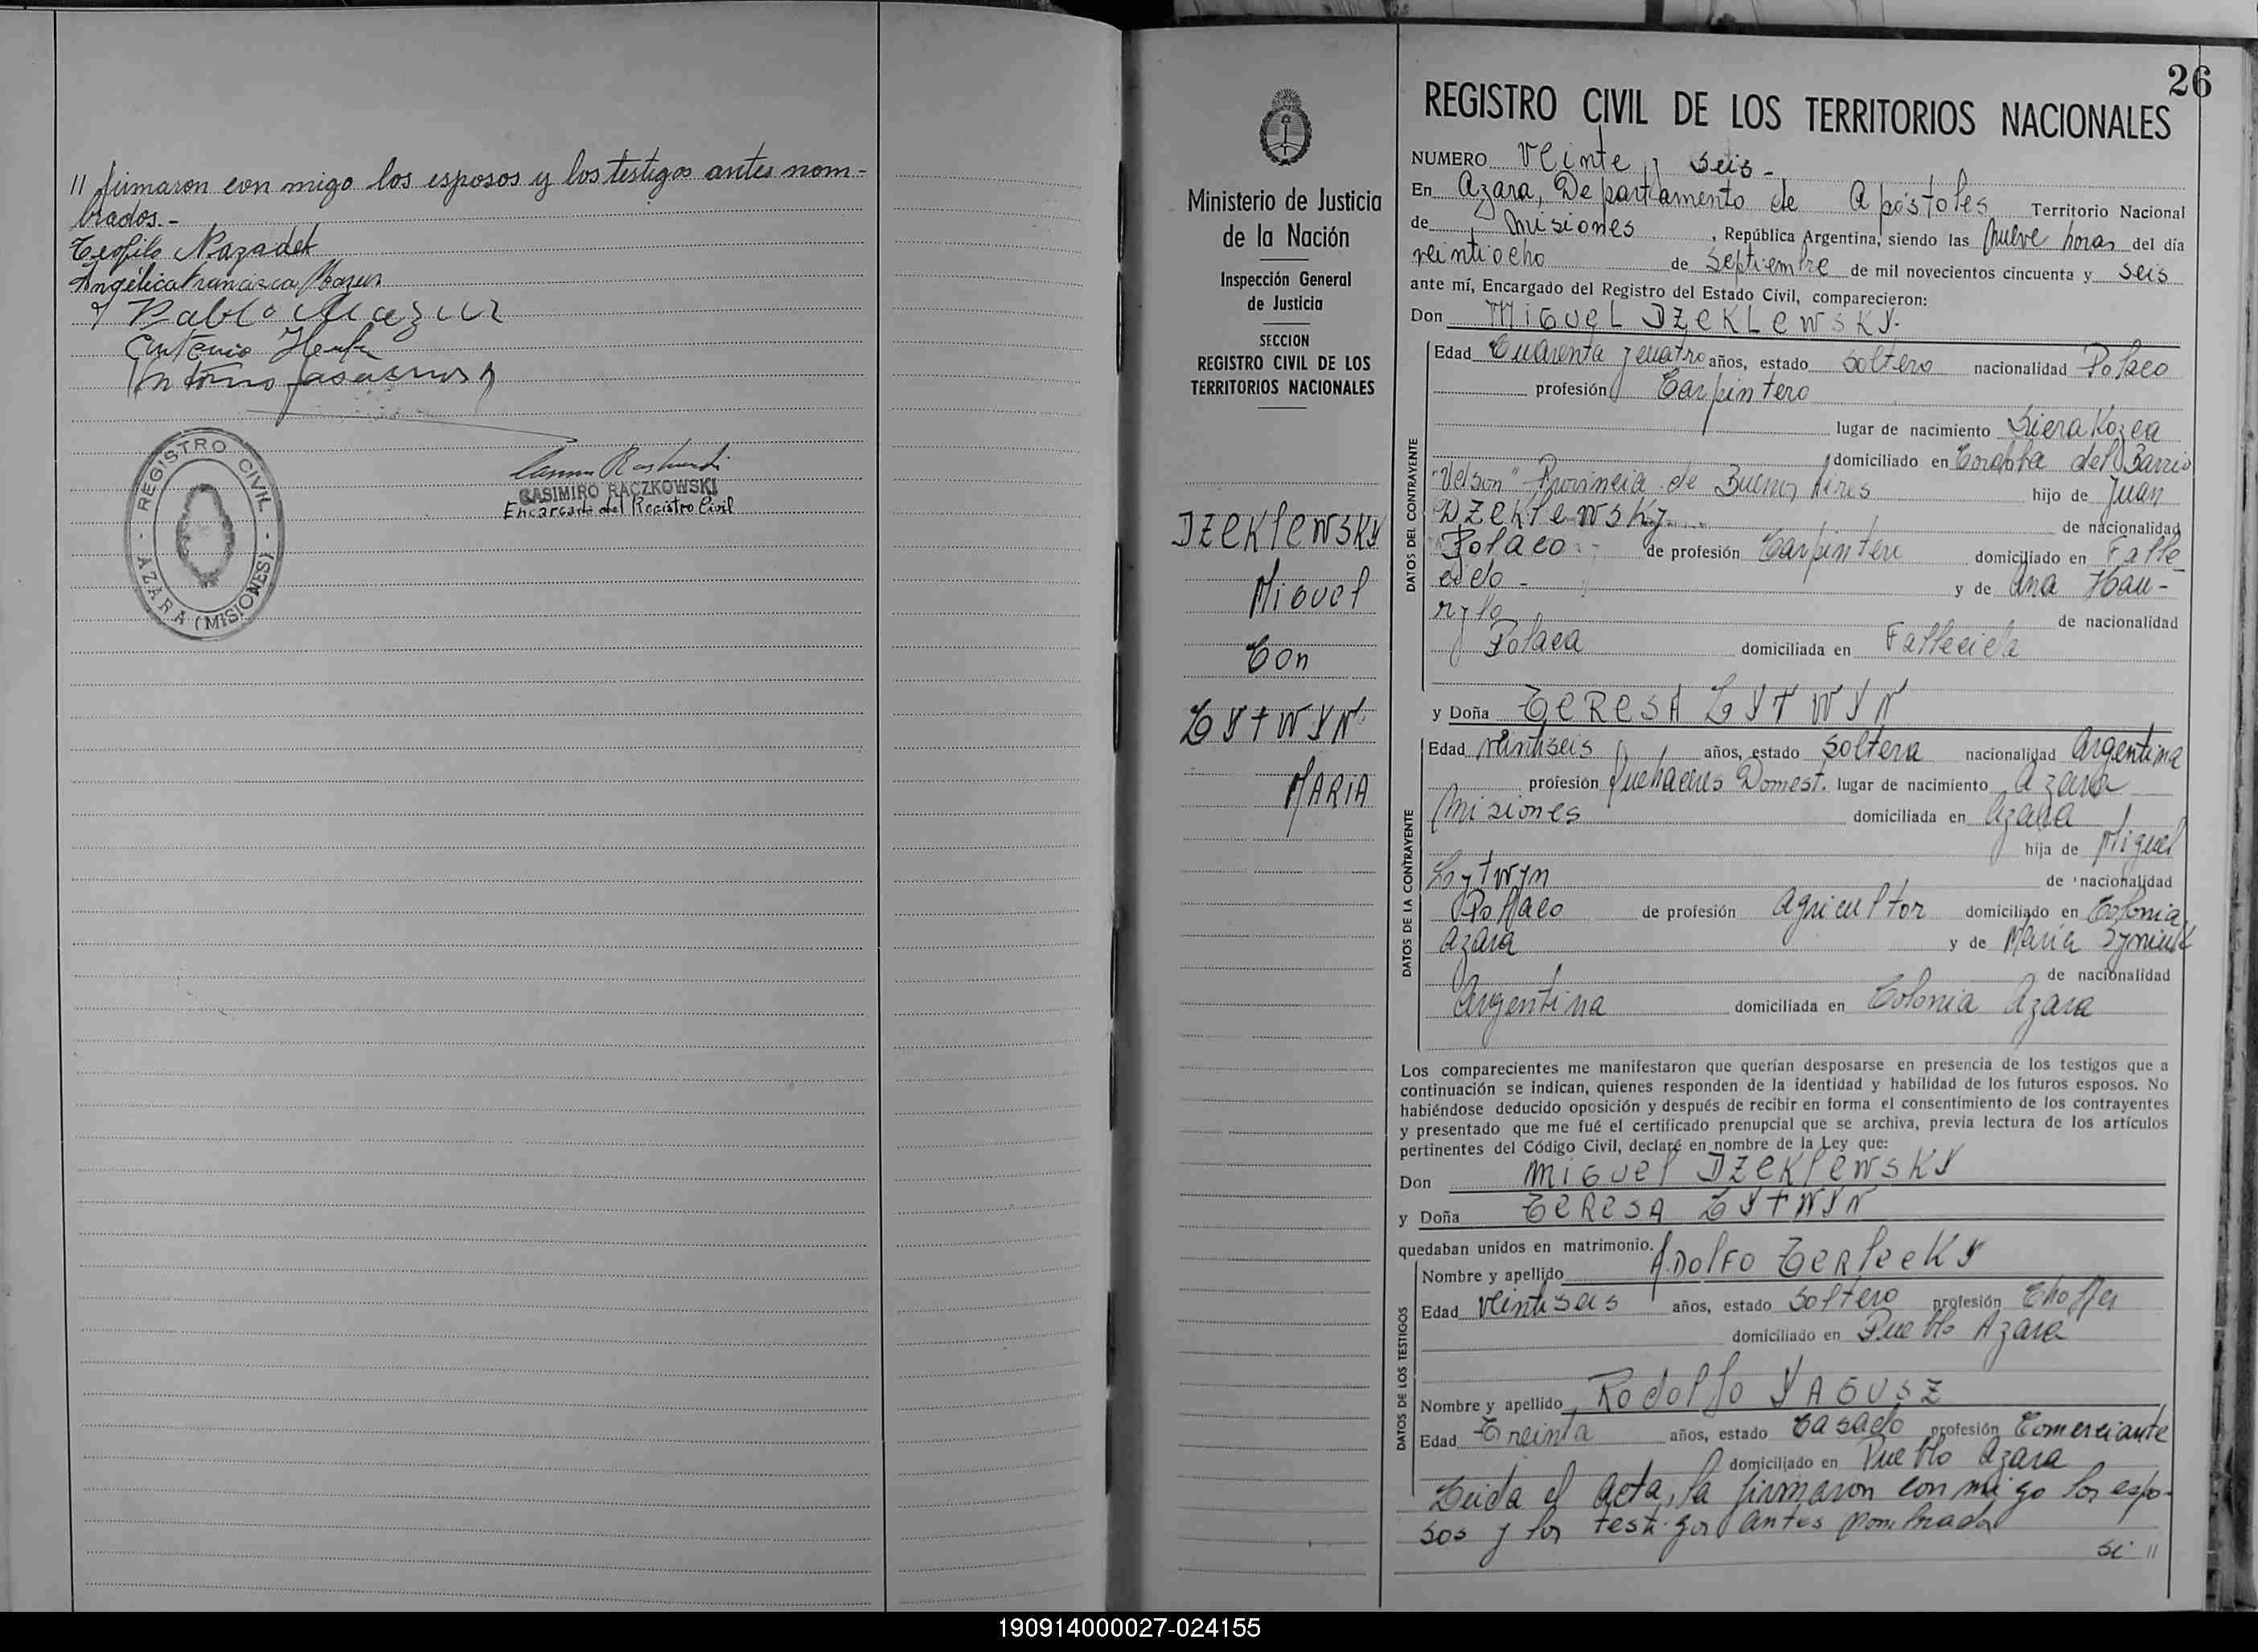 // firmaron con migo los esposos y los testigos antes nom-
brados.-
Teofilo Nazadek
Angélica Francisca Mazur
Pablo Mazur
Antonio
Antonio
REGISTRO CIVIL
- AZARA (MISIONES) -
CASIMIRO RACZKOWSKI
Encargado del Registro Civil
Ministerio de Justicia
de la Nación
Inspección General
de Justicia
SECCION
REGISTRO CIVIL DE LOS
TERRITORIOS NACIONALES
DZEKlEWSKY
Miguel
Con
LYTWYN
MARIA
26
REGISTRO CIVIL DE LOS TERRITORIOS NACIONALES
NUMERO Veinte y seis-
En Azara, Departamento de Apóstoles Territorio Nacional
de Misiones, República Argentina, siendo las Nueve horas del día
veintiocho de Septiembre de mil novecientos cincuenta y seis
ante mí, Encargado del Registro del Estado Civil, comparecieron:
Don MIGUEL DZEKLEWSKY.
DATOS DEL CONTRAYENTE
Edad Cuarenta y cuatro años, estado soltero nacionalidad Polaco
profesión Carpintero
lugar de nacimiento
domiciliado en Cordoba del Barrio
"Velson" Provincia de Buenos Aires hijo de Juan
DZEKlEWSKy de nacionalidad
Polaco de profesión Carpintero domiciliado en Falle-
cido - y de Ana Hau-
rylo de nacionalidad
Polaca domiciliada en Fallecida
y Doña TERESA LYTWYN
DATOS DE LA CONTRAYENTE
Edad veintiseis años, estado Soltera nacionalidad Argentina
profesión Quehaceres Domest. lugar de nacimiento Azara
Misiones domiciliada en Azara
hija de Miguel
Lytwyn de nacionalidad
Pollaco de profesión Agricultor domiciliado en Colonia
Azara y de Maria
de nacionalidad
Argentina domiciliada en Colonia Azara
Los comparecientes me manifestaron que querían desposarse en presencia de los testigos que a
continuación se indican, quienes responden de la identidad y habilidad de los futuros esposos. No
habiéndose deducido oposición y después de recibir en forma el consentimiento de los contrayentes
y presentado que me fué el certificado prenupcial que se archiva, previa lectura de los artículos
pertinentes del Código Civil, declaré en nombre de la Ley que:
Don MIGUEl DZEKlEWSKY
y Doña TERESA LYTWYN
quedaban unidos en matrimonio.
DATOS DE LOS TESTIGOS
Nombre y apellido ADOLFO TERlecKY
Edad veintiseis años, estado Soltero profesión Choffer
domiciliado en Pueblo Azara
Nombre y apellido Rodolfo YAGUSZ
Edad Treinta años, estado Casado profesión Comerciante
domiciliado en Pueblo Azara
Leida el Acta, la firmaron con migo los espo-
sos y los testigos antes nombrados
si //
190914000027-024155